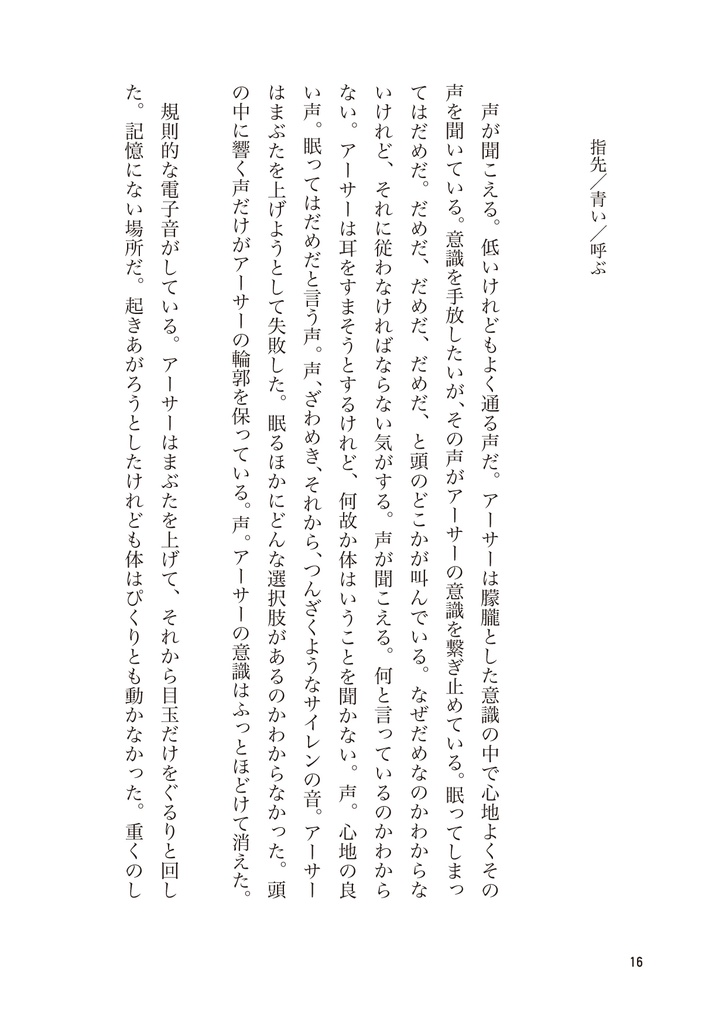 指先／青い／呼ぶ
声が聞こえる。低いけれどもよく通る声だ。アーサーは朦朧とした意識の中で心地よくその
声を聞いている。意識を手放したいが、その声がアーサーの意識を繋ぎ止めている。眠ってしまっ
てはだめだ。だめだ、だめだ、だめだ、と頭のどこかが叫んでいる。なぜだめなのかわからな
いけれど、それに従わなければならない気がする。声が聞こえる。何と言っているのかわから
ない。アーサーは耳をすまそうとするけれど、何故か体はいうことを聞かない。声。心地の良
い声。眠ってはだめだと言う声。声、ざわめき、それから、つんざくようなサイレンの音。アーサー
はまぶたを上げようとして失敗した。眠るほかにどんな選択肢があるのかわからなかった。頭
の中に響く声だけがアーサーの輪郭を保っている。声。アーサーの意識はふっとほどけて消えた。
規則的な電子音がしている。アーサーはまぶたを上げて、それから目玉だけをぐるりと回し
た。記憶にない場所だ。起きあがろうとしたけれども体はぴくりとも動かなかった。重くのし
16